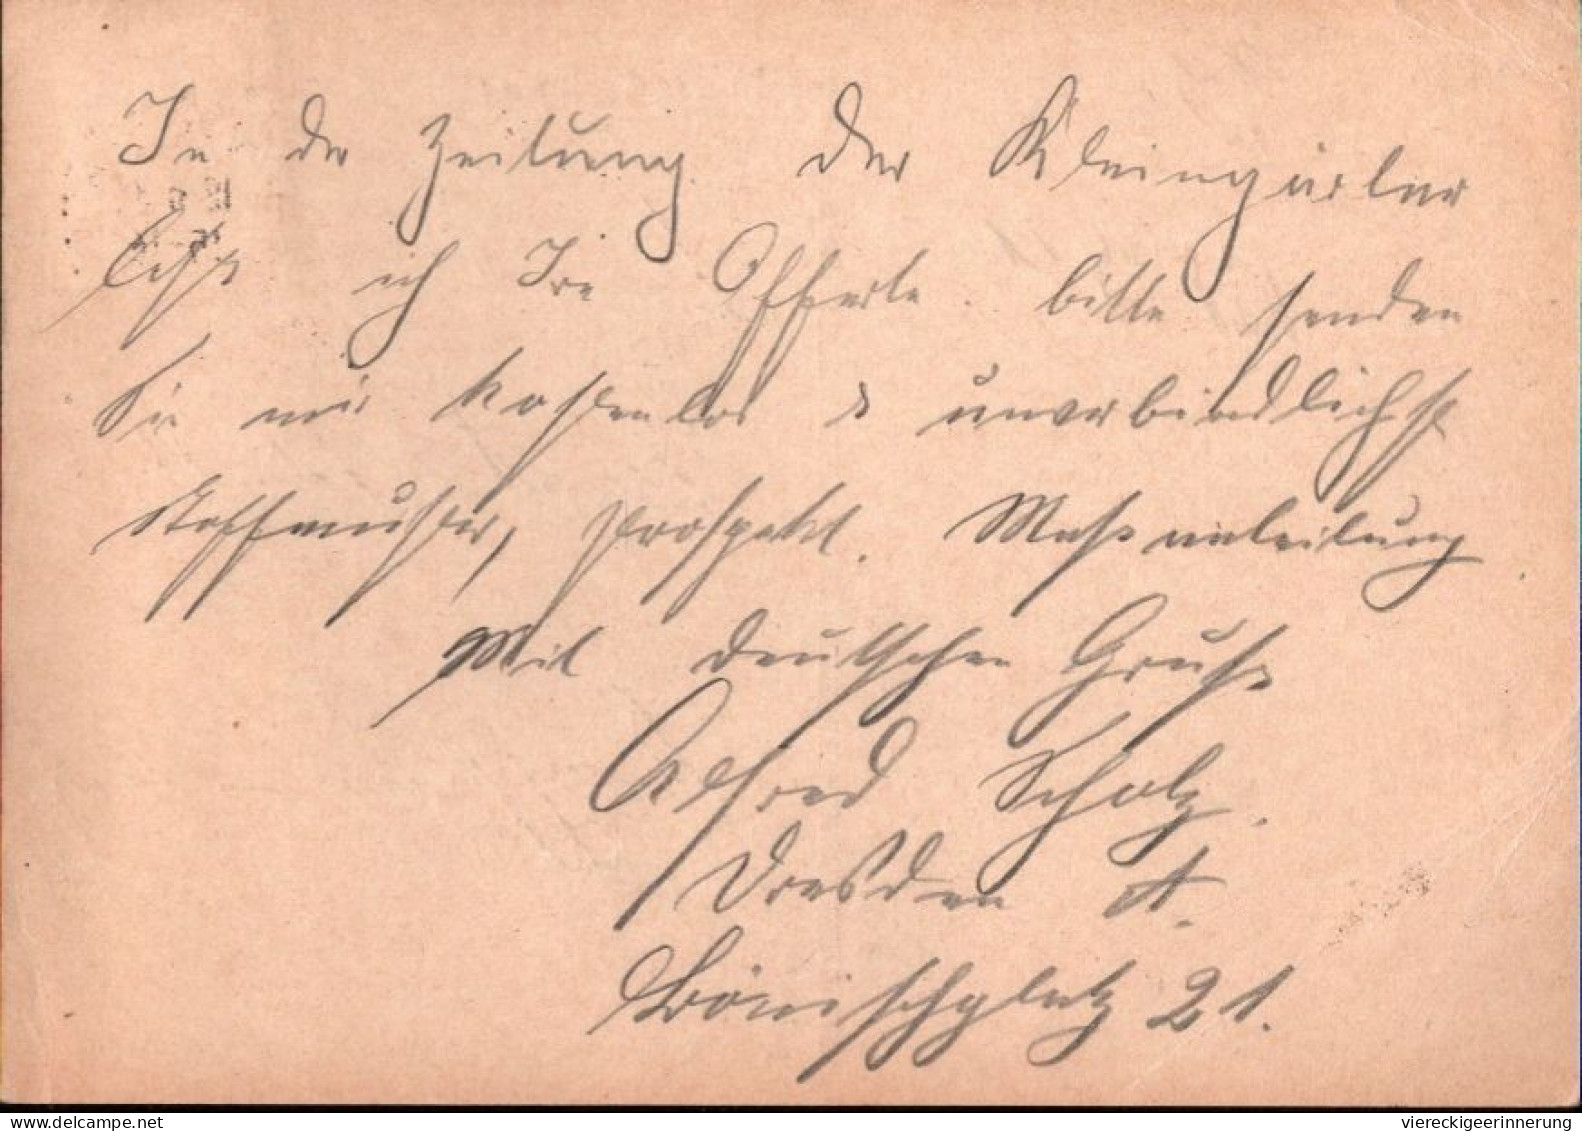 In der Zeitung der Kleingärtner
ich Ire Offerte. bitte senden
Sie mir kostenlos & unverbindlichst
Stoffmuster, Prospekt. Maßanleitung
Mit deutschen Gruß
Alfred Scholz.
Dresden A.
Bönischplatz 21.
viereckigeerinnerung